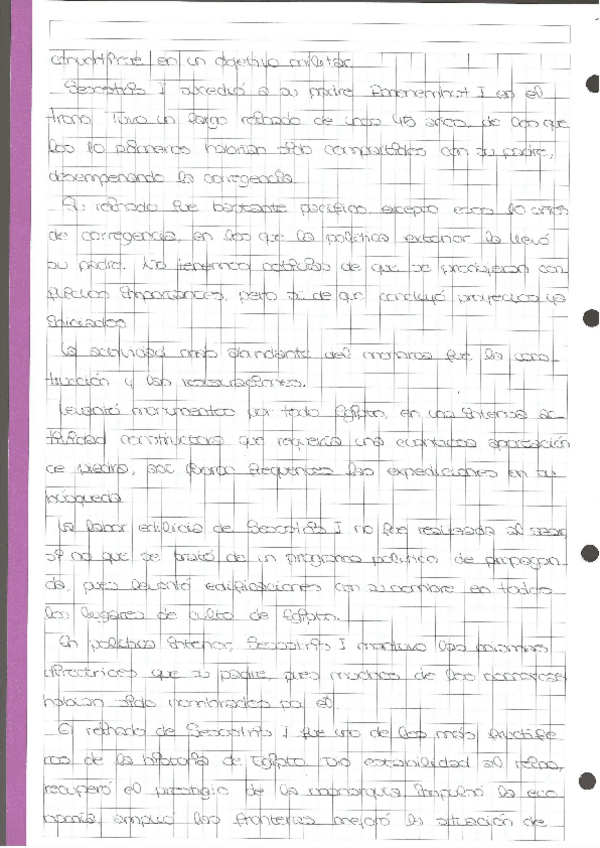 convirtiese en un objetivo militar.
Sesostris I sucedió a su padre Amenemhat I en el
trono. Tuvo un largo reinado de unos 45 años, de los que
los 10 primeros habrían sido compartidos con su padre,
desempeñando la corregencia.
El reinado fue bastante pacífico excepto esos 10 años
de corregencia, en los que la política exterior la llevó
su padre. No tenemos noticias de que se produjeran con
flictos importantes, pero sí de que concluyó proyectos ya
iniciados
La actividad más abundante del monarca fue la cons
trucción y las restauraciones.
Levantó monumentos por todo Egipto, en una intensa ac
tividad constructora que requería una cuantiosa aportación
de piedra, fueron frecuentes las expediciones en su
búsqueda
La labor edilicia de Sesostris I no fue realizada al azar,
si no que se trató de un programa político de propagan
da, pues levantó edificaciones con su nombre en todos
los lugares de culto de Egipto.
En política interior, Sesostris I mantuvo las mismas
directrices que su padre, pues muchos de los
habían sido nombrados por él.
El reinado de Sesostris I fue uno de los más fructífe
ros de la historia de Egipto. Dio estabilidad al reino,
recuperó el prestigio de la monarquía, impulsó la eco
nomía, amplió las fronteras mejoró la situación de